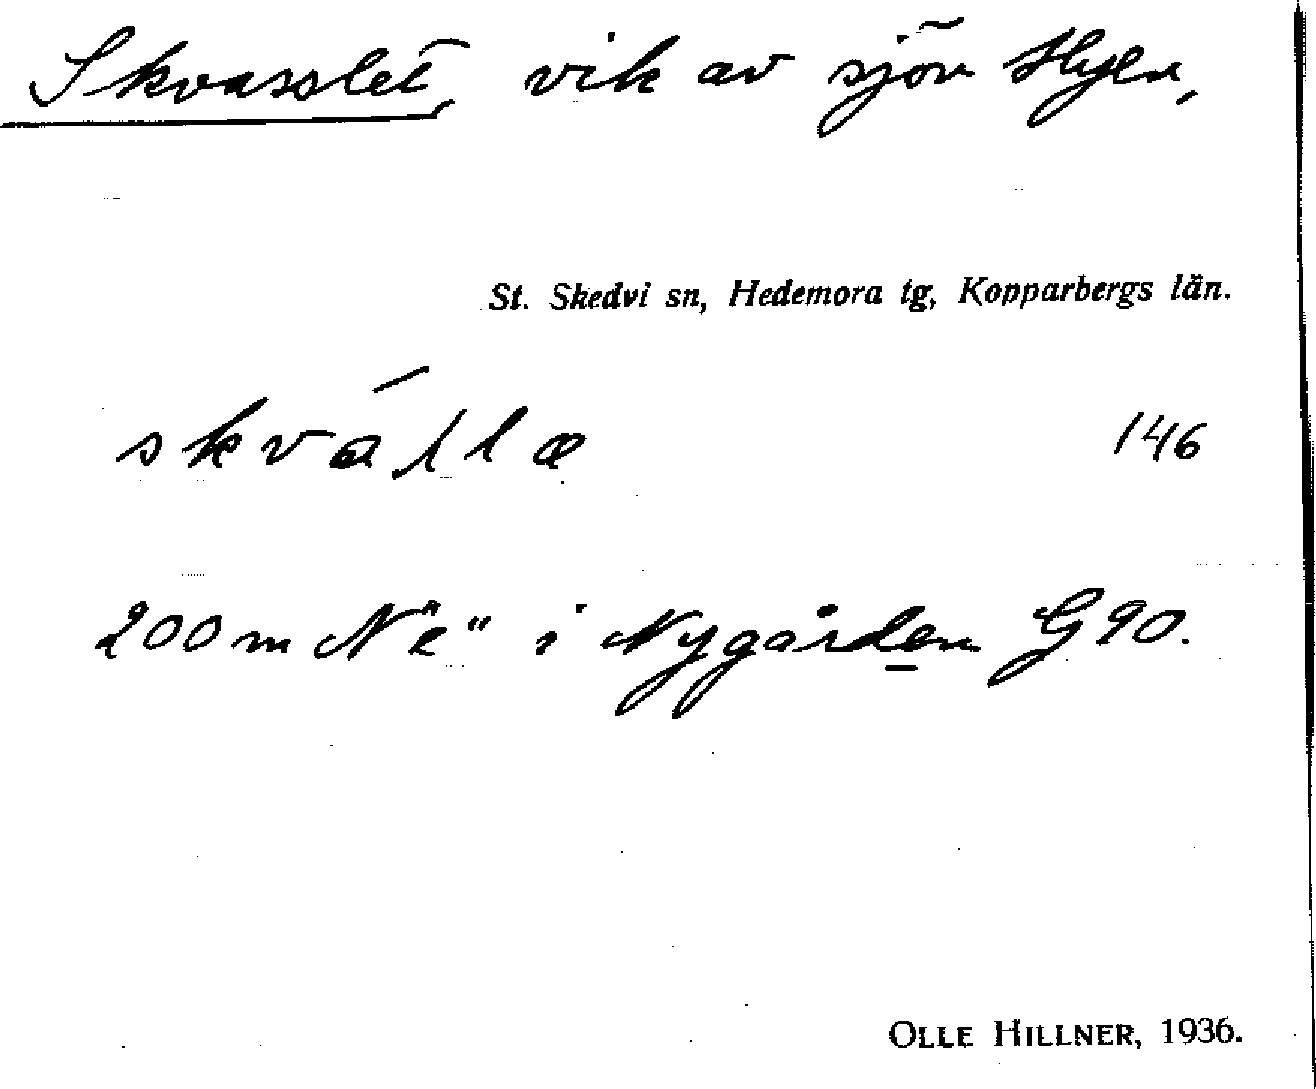 Skvasslet, vik av sjön Hyen,
St. Skedvi sn, Hedemora tg, Kopparbergs län.
146
200 m N "e" i Nygården G 90.
OLLE HILLNER, 1936.